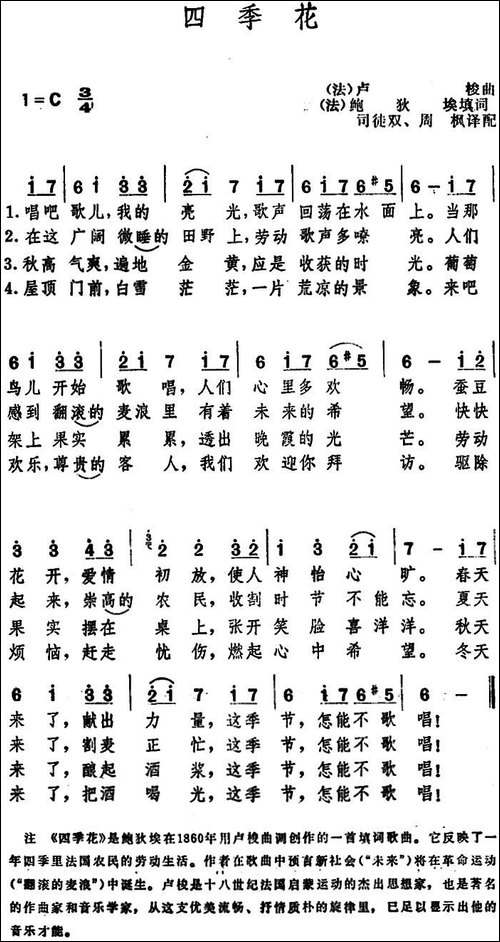 四季花
1=C 3/4
(法)卢 梭曲
(法)鲍 狄 埃填词
司徒双、周 枫译配
i 7 | 6 i 3 3 | 2 i 7 i 7 | 6 i 7 6 #5 | 6 - i 7
1. 唱吧 歌儿,我的 亮 光,歌声 回荡在水 面 上。当那
2. 在这 广阔 微睡的 田野 上,劳动 歌声多嘹 亮。人们
3. 秋高 气爽,遍地 金 黄,应是 收获的时 光。葡萄
4. 屋顶 门前,白雪 茫 茫,一片 荒凉的景 象。来吧
6 i 3 3 | 2 i 7 i 7 | 6 i 7 6 #5 | 6 - i 2
鸟儿 开始 歌 唱,人们 心里多欢 畅。蚕豆
感到 翻滚的 麦浪里 有着 未来的希 望。快快
架上 果实 累 累,透出 晚霞的光 芒。劳动
欢乐,尊贵的 客 人,我们 欢迎你拜 访。驱除
3 3 4 3 | 3 2 2 3 2 | i 3 2 i | 7 - i 7
花 开,爱情 初 放,使人 神怡心 旷。春天
起 来,崇高的 农 民,收割 时节不能忘。夏天
果 实 摆在 桌 上,张开 笑脸喜洋洋。秋天
烦 恼,赶走 忧 伤,燃起 心中希 望。冬天
6 i 3 3 | 2 i 7 i 7 | 6 i 7 6 #5 | 6 -
来 了,献出 力 量,这季 节,怎能不 歌 唱!
来 了,割麦 正 忙,这季 节,怎能不 歌 唱!
来 了,酿起 酒 浆,这季 节,怎能不 歌 唱!
来 了,把酒 喝 光,这季 节,怎能不 歌 唱!
注 《四季花》是鲍狄埃在1860年用卢梭曲调创作的一首填词歌曲。它反映了一
年四季里法国农民的劳动生活。作者在歌曲中预言新社会(“未来”)将在革命运动
(“翻滚的麦浪”)中诞生。卢梭是十八世纪法国启蒙运动的杰出思想家,也是著名
的作曲家和音乐学家,从这支优美流畅、抒情质朴的旋律里,已足以显示出他的
音乐才能。